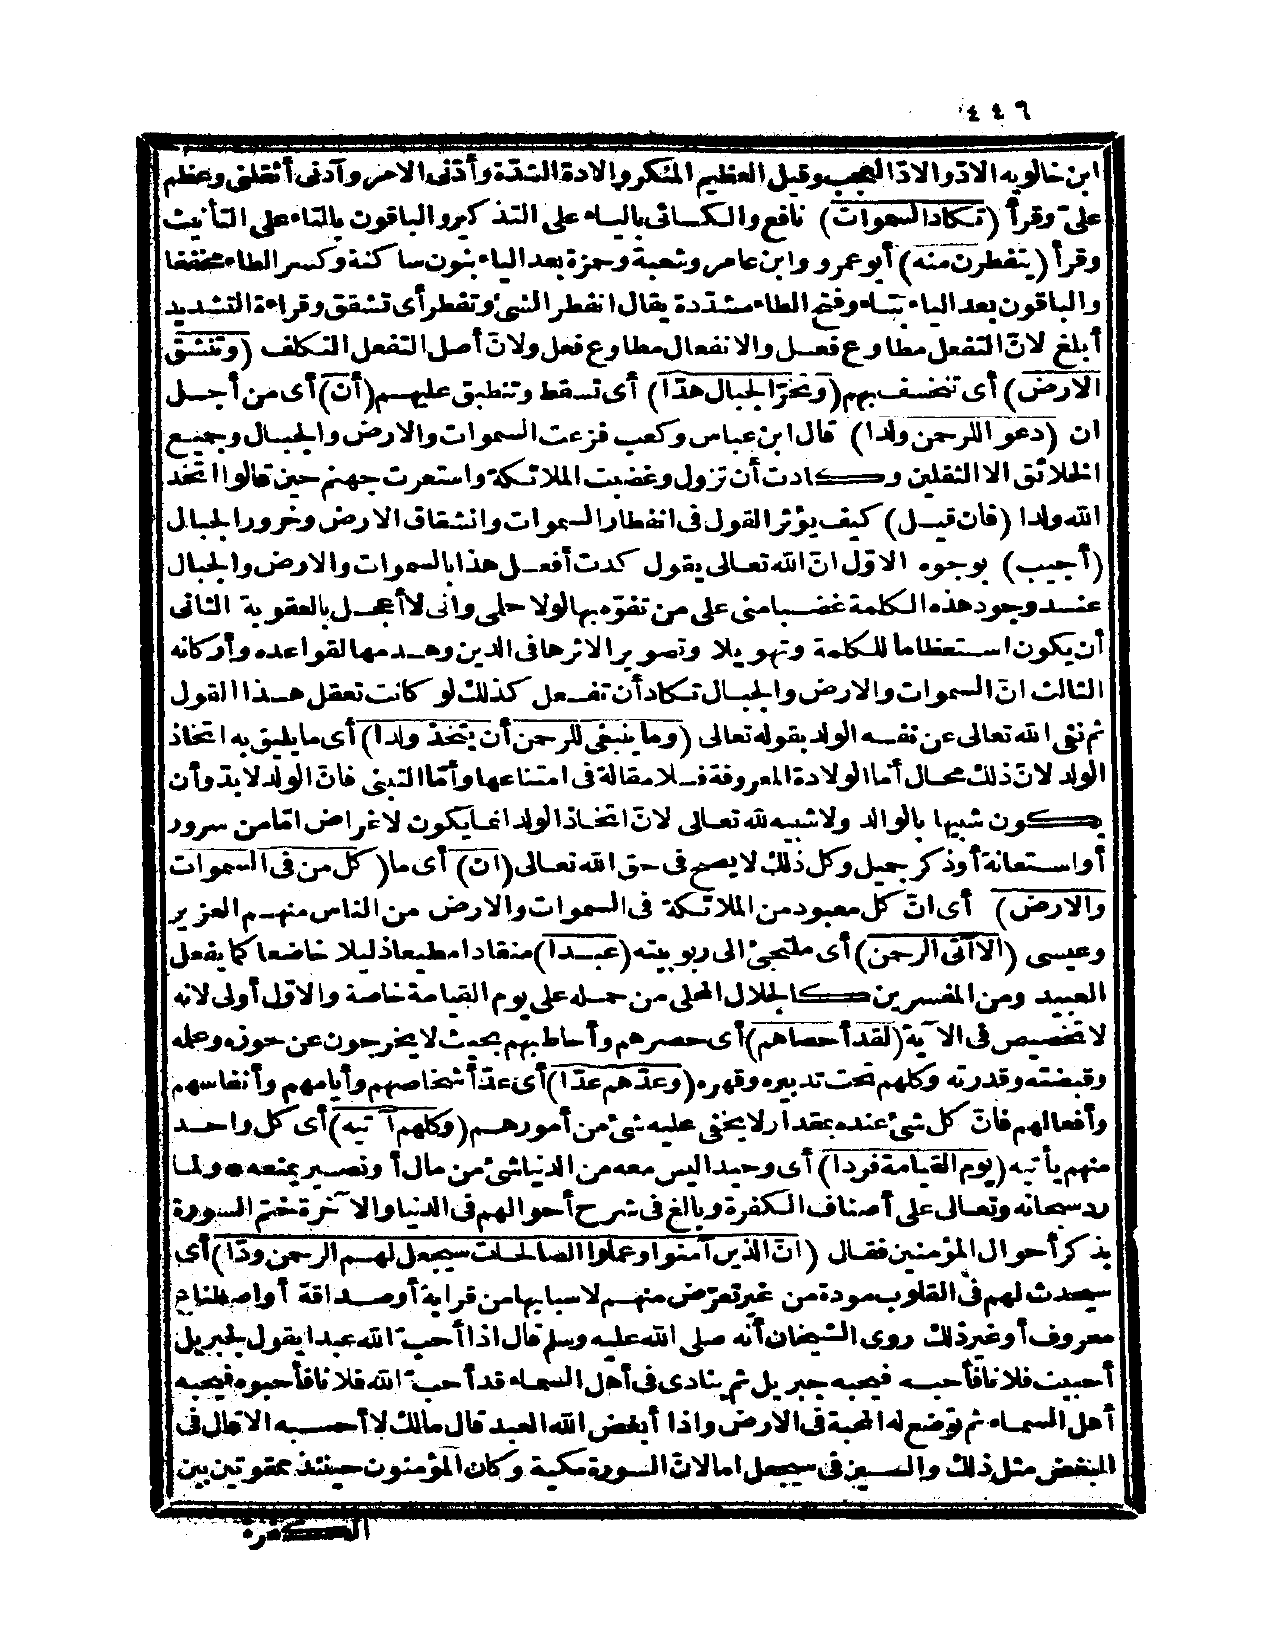 ٤٤٦
ابن خالويه الادّ والادّ العجب وقيل العظيم المنكر والادة الشدّة وأدّنى الامر وآدنى أثقلنى وعظم
علىّ وقرأ (تكاد السموات) نافع والكسائى بالياء على التذكير والباقون بالتاء على التأنيث
وقرأ (يتفطرن منه) أبو عمرو وابن عامر وشعبة وحمزة بعد الياء بنون ساكنة وكسر الطاء مخففا
والباقون بعد الياء بتاء وفتح الطاء مشدّدة يقال انفطر الشئ وتفطر أى تشقق وقراءة التشديد
أبلغ لانّ التفعل مطاوع فعل والانفعال مطاوع فعل ولانّ أصل التفعل التكلف (وتنشق
الارض) أى تنخسف بهم (وتخرّ الجبال هذا) أى تسقط وتنطبق عليهم (أن) أى من أجل
ان (دعو اللرحمن ولدا) قال ابن عباس وكعب فزعت السموات والارض والجبال وجميع
الخلائق الا الثقلين وكادت أن تزول وغضبت الملائكة واستعرت جهنم حين قالوا اتخذ
الله ولدا (فان قيل) كيف يؤثر القول فى انفطار السموات وانشقاق الارض وخرور الجبال
(أجيب) بوجوه الاوّل انّ الله تعالى يقول كدت أفعل هذا بالسموات والارض والجبال
عند وجود هذه الكلمة غضبا منى على من تفوّه بها لولا حلمى وانى لا أعجل بالعقوبة الثانى
أن يكون استعظاما للكلمة وتهويلا وتصويرا لاثرها فى الدين وهدمها لقواعده وأركانه
الثالث انّ السموات والارض والجبال تكاد أن تفعل كذلك لو كانت تعقل هذا القول
ثم نفى الله تعالى عن نفسه الولد بقوله تعالى (وما ينبغى للرحمن أن يتخذ ولدا) أى ما يليق به اتخاذ
الولد لانّ ذلك محال أما الولادة المعروفة فلا مقالة فى امتناعها وأمّا التبنى فانّ الولد لابدّ وأن
يكون شبيها بالوالد ولا شبيه لله تعالى لانّ اتخاذ الولد انما يكون لاغراض امّا من سرور
أو استعانة أو ذكر جميل وكل ذلك لا يصح فى حق الله تعالى (ان) أى ما (كل من فى السموات
والارض) أى انّ كل معبود من الملائكة فى السموات والارض من الناس منهم العزير
وعيسى (الا آتى الرحمن) أى ملتجئ الى ربوبيته (عبدا) منقادا مطيعا ذليلا خاضعا كما يفعل
العبيد ومن المفسرين كالجلال المحلى من حمله على يوم القيامة خاصة والاوّل أولى لانه
لا تخصيص فى الآية (لقد أحصاهم) أى حصرهم وأحاط بهم بحيث لا يخرجون عن حوزه وعلمه
وقبضته وقدرته وكلهم تحت تدبيره وقهره (وعدّهم عدّا) أى عدّ أشخاصهم وأيامهم وأنفاسهم
وأفعالهم فانّ كل شئ عنده بمقدار لا يخفى عليه شئ من أمورهم (وكلهم آتيه) أى كل واحد
منهم يأتيه (يوم القيامة فردا) أى وحيدا ليس معه من الدنيا شئ من مال أو نصير يمنعه * ولما
رد سبحانه وتعالى على أصناف الكفرة وبالغ فى شرح أحوالهم فى الدنيا والآخرة ختم السورة
بذكر أحوال المؤمنين فقال (انّ الذين آمنوا وعملوا الصالحات سيجعل لهم الرحمن ودّا) أى
سيحدث لهم فى القلوب مودة من غير تعرّض منهم لاسبابها من قرابة أو صداقة أو اصطناع
معروف أو غير ذلك روى الشيخان أنه صلى الله عليه وسلم قال اذا أحبّ الله عبدا يقول لجبريل
أحببت فلانا فأحبه فيحبه جبريل ثم ينادى فى أهل السماء قد أحبّ الله فلانا فأحبوه فيحبه
أهل السماء ثم توضع له المحبة فى الارض واذا أبغض الله العبد قال مالك لا أحسبه الا قال فى
البغض مثل ذلك والسين فى سيجعل اما لانّ السورة مكية وكان المؤمنون حينئذ ممقوتين بين
الكفرة